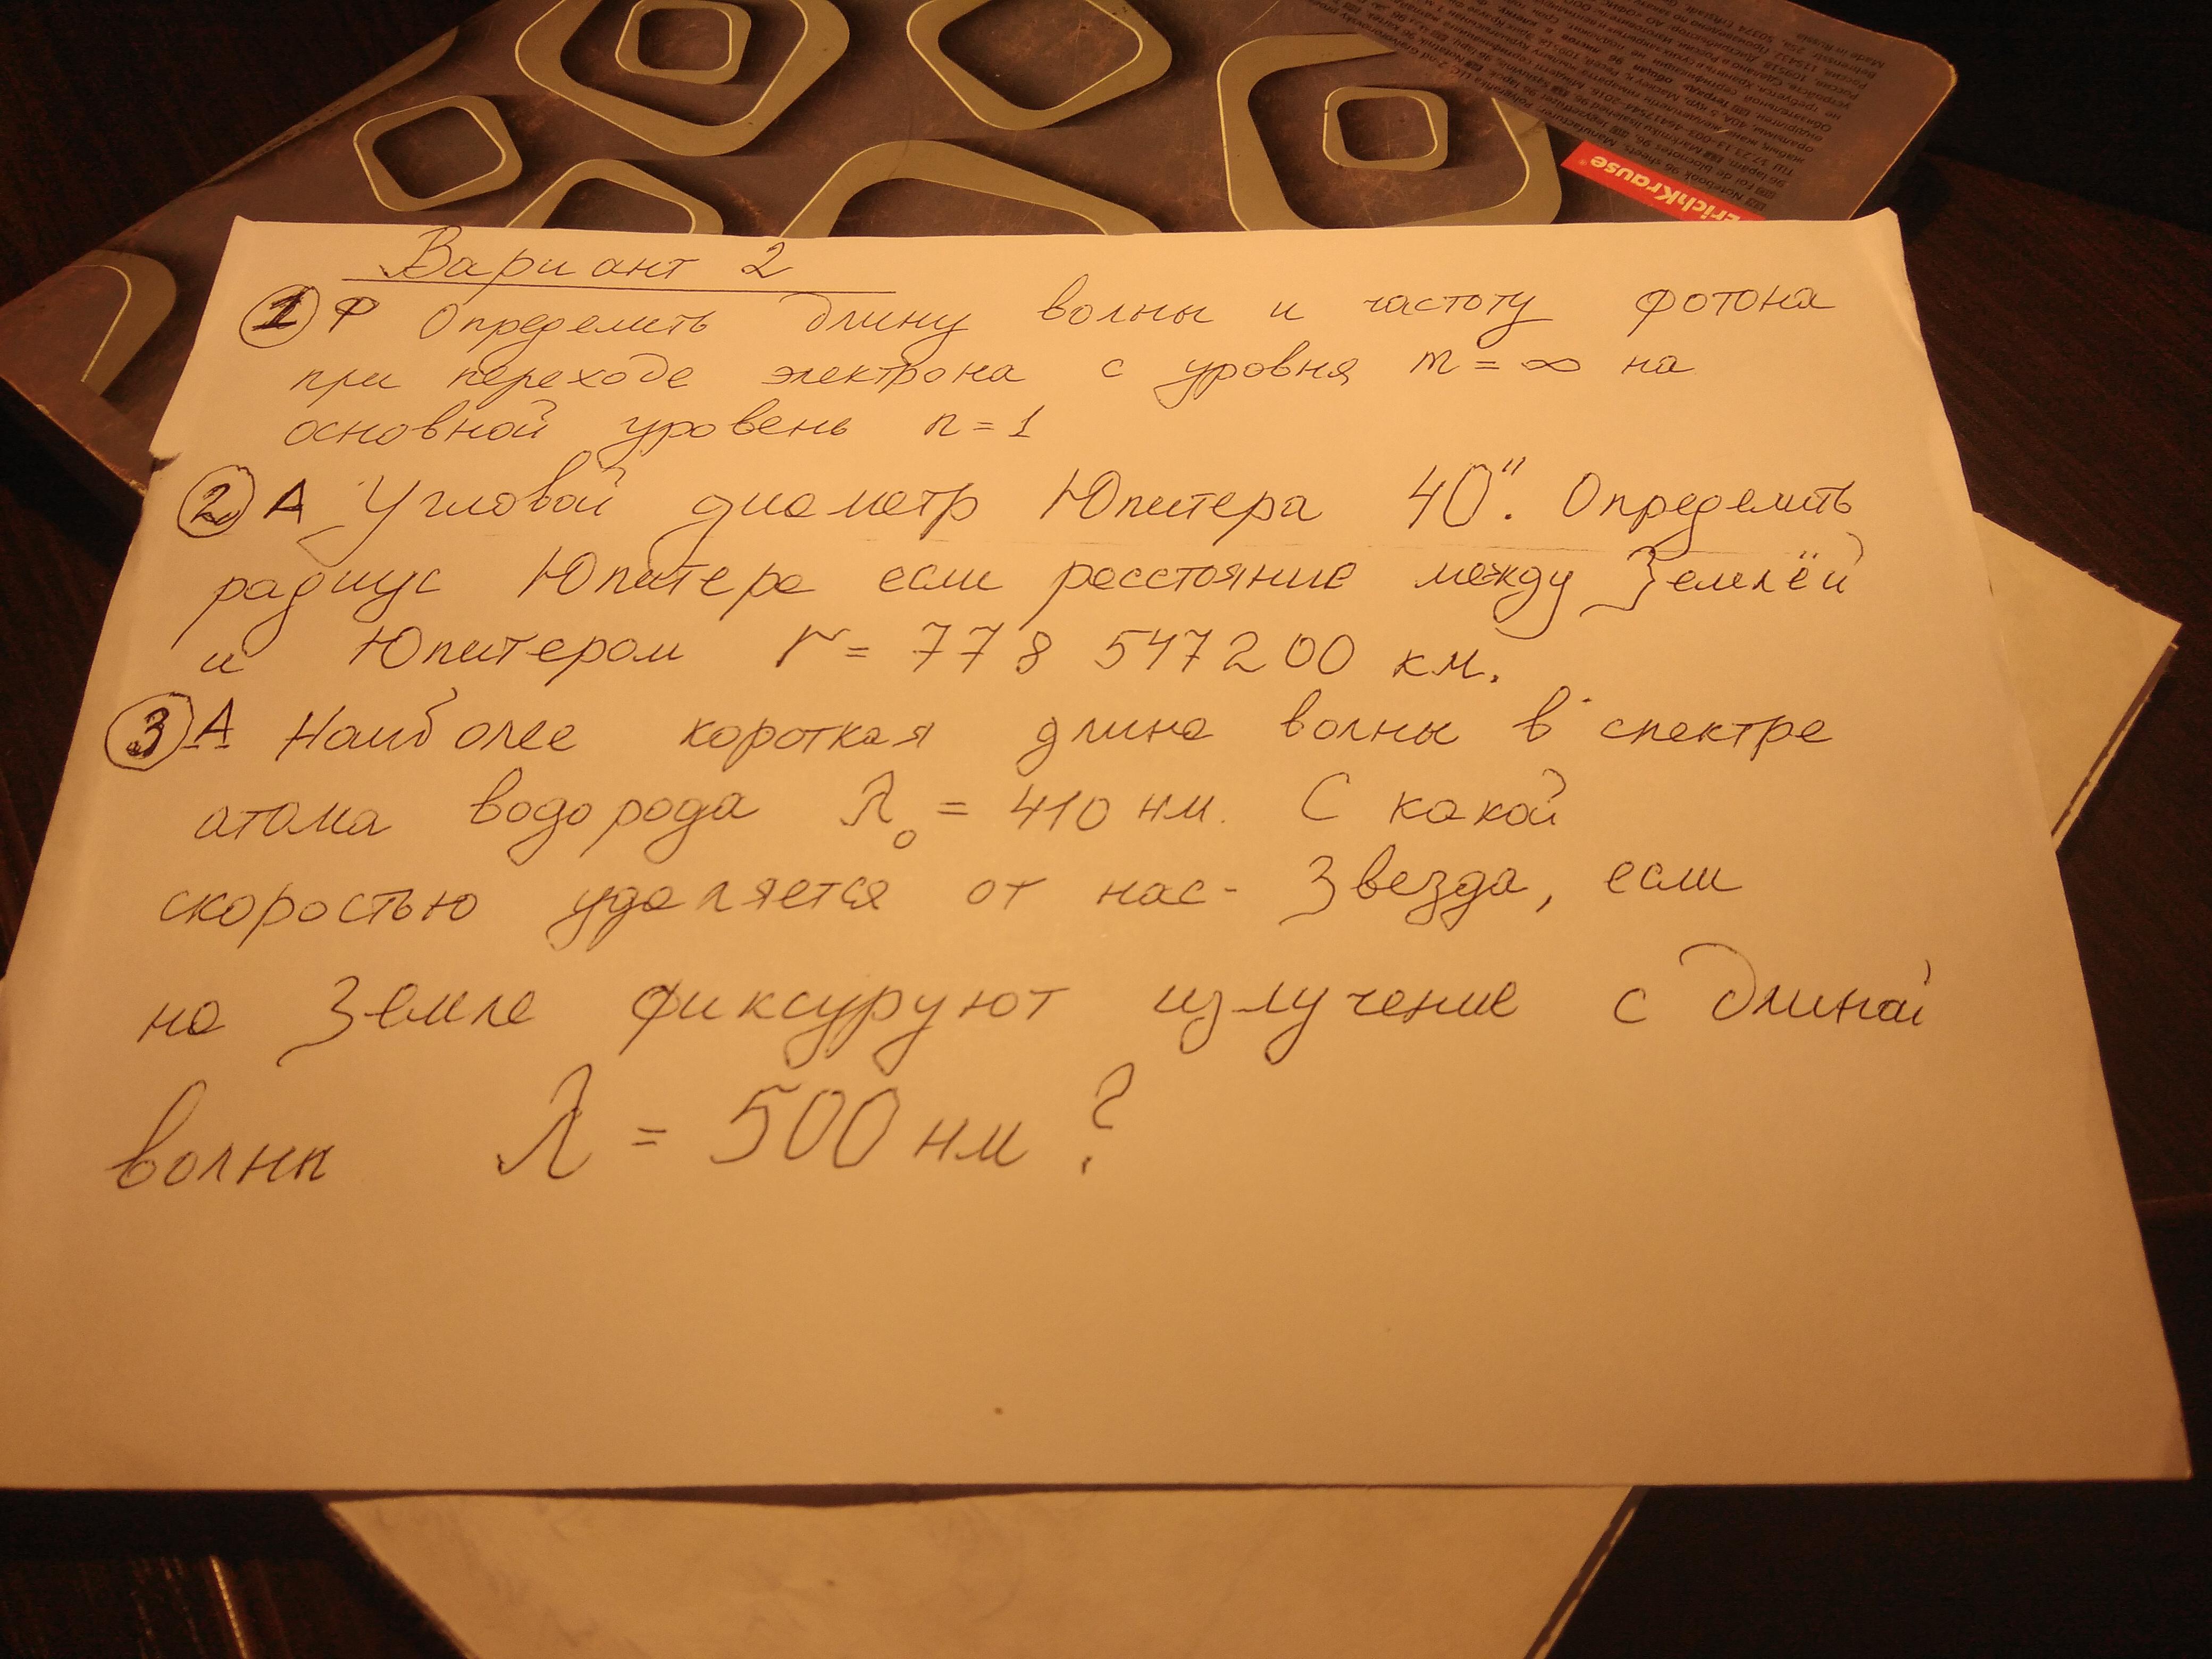 Вариант 2
1 Ф Определить длину волны и частоту фотона
при переходе электрона с уровня m = ∞ на
основной уровень n = 1
2 А Угловой диаметр Юпитера 40". Определить
радиус Юпитера если расстояние между Землёй
и Юпитером r = 778 547200 км.
3 А Наиболее короткая длина волны в спектре
атома водорода λ₀ = 410 нм. С какой
скоростью удаляется от нас- Звезда, если
на Земле фиксуруют излучение с длиной
волны λ = 500 нм ?
ErichKrause
Made in Russia